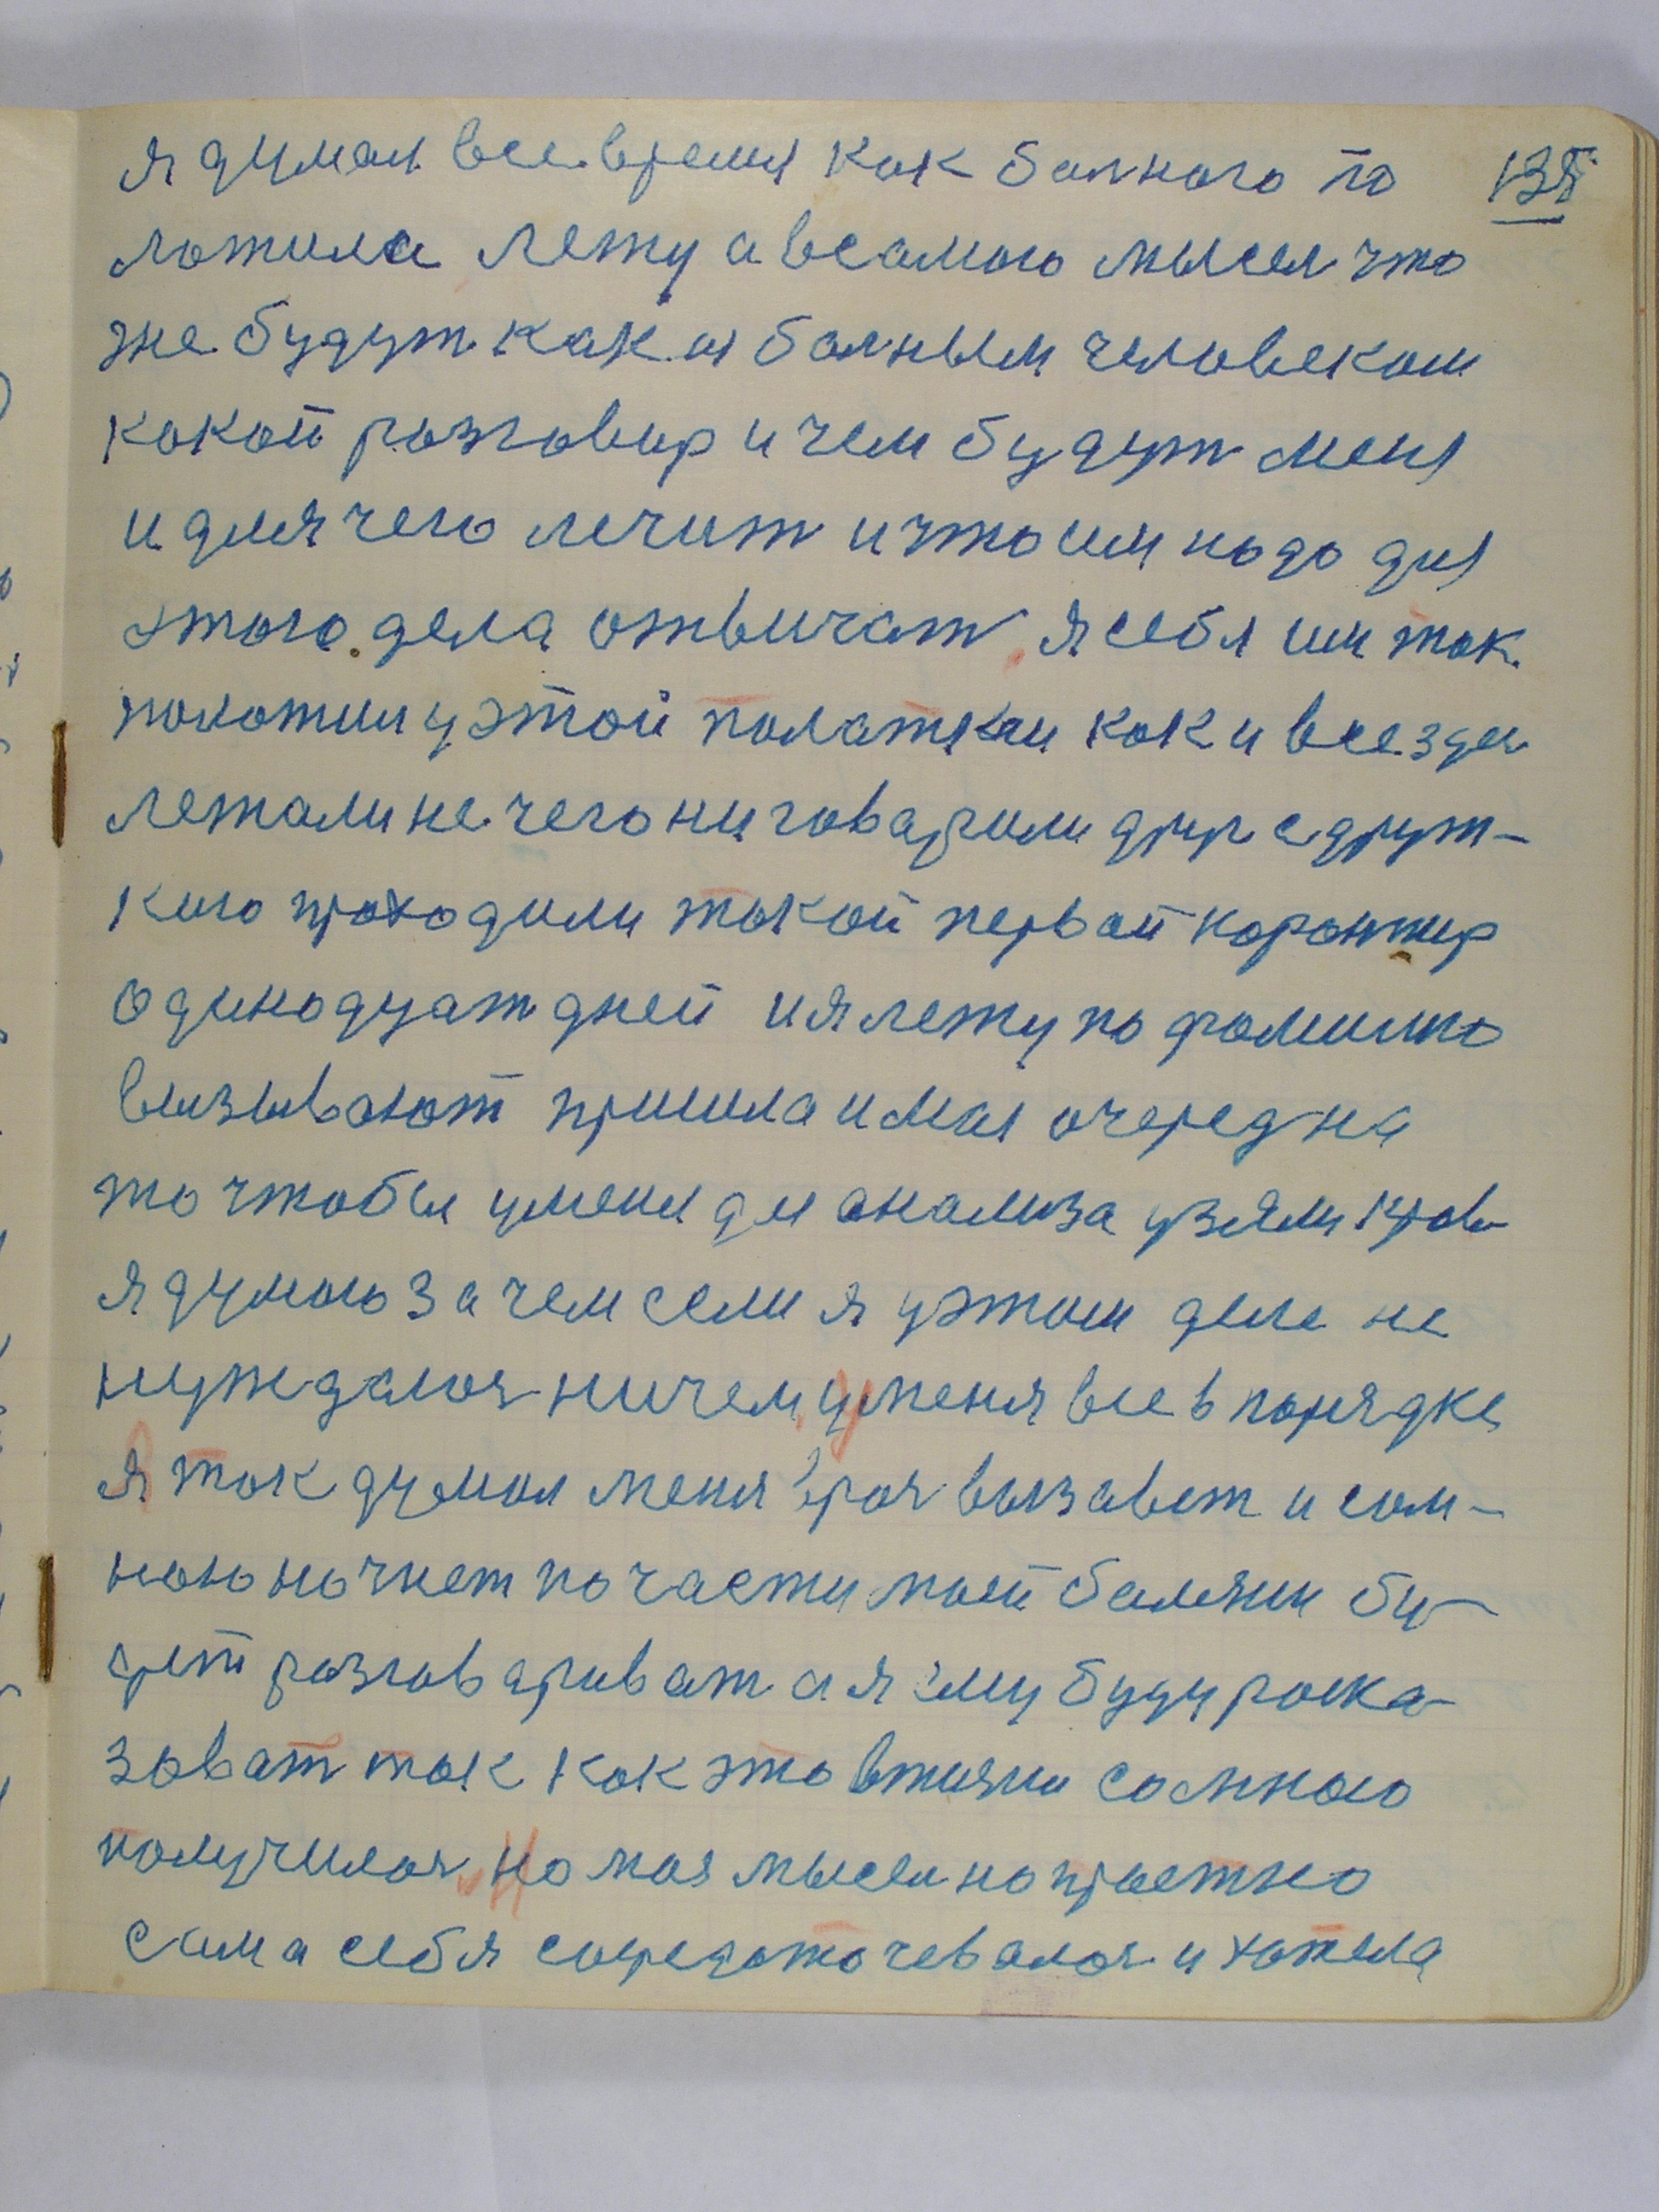 я думал все время как балного по 135
ложила лежу а всамого мысел что
же будут как из болным человеком
какой розговор и чем будут меня
и для чего лечит и что им надо для
этого дела отвычат, я себя им так
положил у этой полатки как и все здес
лежали не чего ни говарили друг с друж-
кию проходили такой первай корантир
одинодцат дней и я лежу по фомилию
вызывают пришла и моя очеред на
то чтобы у меня для анализа узяли кров
я думаю зачем если я у этом деле не
нуждался ничем, у меня все в порядке
я так думал меня врач вызавет и сом-
ною начнет по части моей балезни бу-
дет розговариват а я ему буду роска-
зоват так как это в жизни со мною
получилоя, но моя мысел напрасно
сама себя сосредоточевалоя и хатела